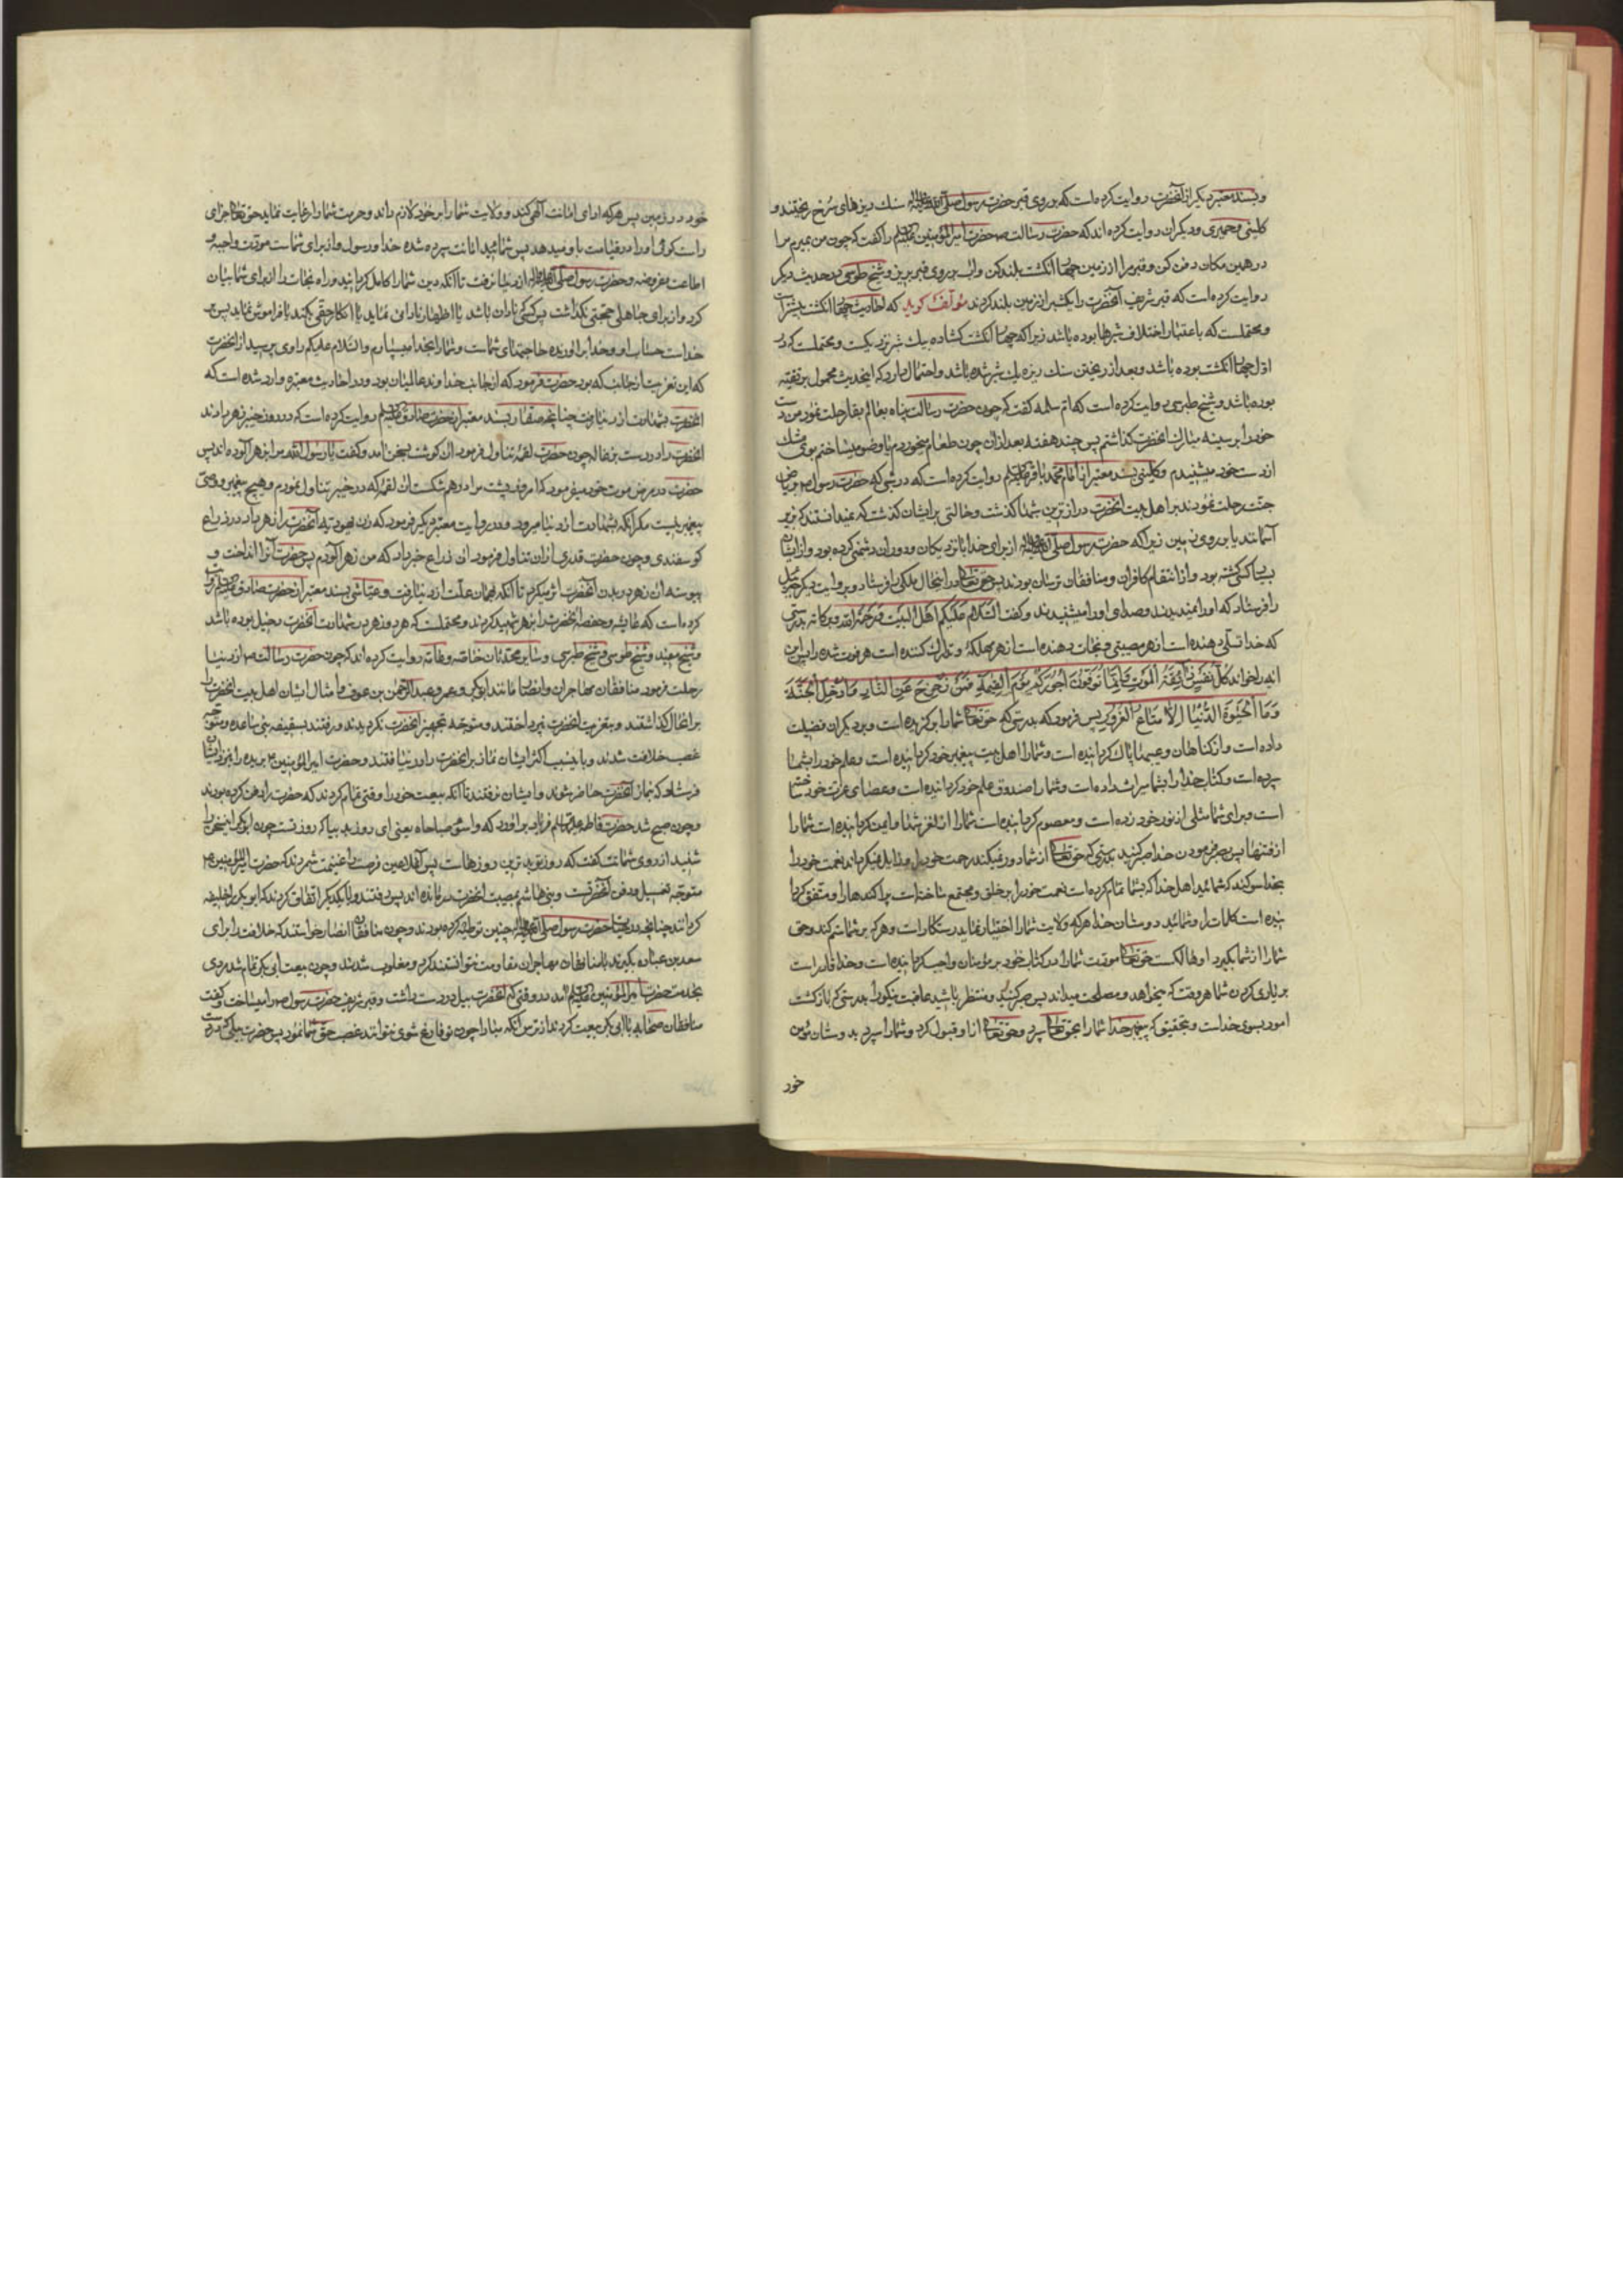 و بسند معتبر دیگر از آنحضرت روایت کرده است که بر روی قبر حضرت رسول صلی الله علیه وآله سنك ریزهای سرخ ریختند و
کلینی و حمیری و دیگران روایت کرده اند که حضرت رسالت ص حضرت امیر المؤمنین علیه السلم را کفت که چون من بمیرم مرا
در همین مکان دفن کن و قبر مرا از زمین چهار انکشت بلند کن و اب بر روی قبر بریز و شیخ طوسی در حدیث دیکر
روایت کرده است که قبر شریف آنحضرت را یکشبر از زمین بلند کردند مؤلف کوید که احادیث چهار انکشت بیشتر است
و محتملست که باعتبار اختلاف شبرها بوده باشد زیرا که چهار انکشت کشاده بیك شبر نزدیکست و محتملست که در
اول چهار انکشت بوده باشد و بعد از ریختن سنك ریزه یك شبر شده باشد و احتمال دارد که اینحدیث محمول بر تقیه
بوده باشد و شیخ طبرسی روایت کرده است که ام سلمه کفت که چون حضرت رسالت پناه بعالم بقا رحلت نمود من دست
خود را بر سینه مبارك انحضرت کذاشتم پس چند هفته بعد ازان چون طعام میخوردم یا وضو میساختم بوی مشك
از دست خود میشنیدم و کلینی بسند معتبر از امام محمد باقر علیه السلم روایت کرده است که در شبی که حضرت رسول ص بریاض
جنت رحلت نمودند بر اهل بیت انحضرت درازترین شبها کذشت و حالتی بر ایشان کذشت که نمیدانستند که زیر
آسمانند یا بر روی زمین زیرا که حضرت رسول صلی الله علیه وآله از برای خدا با نزدیکان و دوران دشمنی کرده بود و از ایشان
بسیار کسی کشته بود و از انتقام کافران و منافقان ترسان بودند پس حق تعالی در انحال ملکی را فرستاد و بروایت دیکر جبرئیل
را فرستاد که او را نمیدیدند و صدای او را میشنیدند و کفت السلام علیکم اهل البیت و رحمة الله و برکاته بدرستی
که خدا تسلی دهنده است از هر مصیبتی و نجات دهنده است از هر مهلکۀ و تدارك کننده است هر فوت شده را پس این
ایه را خواند کُلُّ نَفْسٍ ذَائِقَةُ الْمَوْتِ وَاِنَّمَا تُوَفَّوْنَ اُجُورَکُمْ یَوْمَ الْقِیٰمَةِ فَمَنْ زُحْزِحَ عَنِ النَّارِ وَاُدْخِلَ الْجَنَّةَ
وَمَا الْحَیٰوةُ الدُّنْیَا اِلَّا مَتَاعُ الْغُرُورِ پس فرمود که بدرستی که حق تعالی شما را برکزیده است و بر دیکران فضیلت
داده است و از کناهان و عیبها پاك کردانیده است و شما را اهل بیت پیغمبر خود کردانیده است و علم خود را بشما
سپرده است و کتاب خدا را بشما میراث داده است و شما را صندوق علم خود کردانیده است و عصای عزت خود ساخته
است و برای شما مثلی از نور خود زده است و معصوم کردانیده است شما را از لغزشها و ایمن کردانیده است شما را
از فتنها پس صبر فرمودن خدا صبر کنید بدرستی که حق تعالی از شما دور نمیکند رحمت خود را و زایل نمیکرداند نعمت خود را
بخدا سوکند که شمائید اهل خدا که بشما تمام کرده است نعمت خود را بر خلق و مجتمع ساخته است پراکندها را و متفق کردا
نیده است کلمات را و شمائید دوستان خدا هر که ولایت شما را اختیار نماید رستکار است و هر که بر شما ستم کند و حق
شما را از شما بکیرد او هالکست حق تعالی مودت شما را در کتاب خود بر مؤمنان واجب کردانیده است و خدا قادر است
بر یاری کردن شما هر وقت که میخواهد و مصلحت میداند پس صبر کنید و منتظر باشید عاقبت نیکو را بدرستی که بازکشت
امور بسوی خداست و بتحقیق که پیغمبر خدا شما را بحق تعالی سپرد و حق تعالی از او قبول کرد و شما را سپرد بدوستان مؤمن
خود
خود در زمین پس هر که ادای امانت الهی کند و ولایت شما را بر خود لازم داند و حرمت شما را رعایت نماید حق تعالی جزای
راست کوئی او را در قیامت باو میدهد پس شمائید امانت سپرده شده خدا و رسول و از برای شماست مودت واجبه و
اطاعت مفروضه و حضرت رسول صلی الله علیه وآله از دنیا نرفت تا آنکه دین شما را کامل کردانید و راه نجات را از برای شما بیان
کرد و از برای جاهلی حجتی نکذاشت پس کسی که نادان باشد یا اظهار نادانی نماید یا انکار حقی بکند یا فراموش نماید پس بر
خداست حساب او و خدا براورنده حاجتهای شماست و شما را بخدا میسپارم والسلام علیکم راوی پرسید از انحضرت
که این تعزیت از جانب که بود حضرت فرمود که از جانب خداوند عالمیان بود و در احادیث معتبره وارد شده است که
انحضرت بشهادت از دنیا رفت چنانچه صفار بسند معتبر از حضرت صادق علیه السلم روایت کرده است که در روز خیبر زهر دادند
انحضرت را در دست بزغاله چون حضرت لقمۀ تناول فرمود ان کوشت بسخن آمد و کفت یا رسول الله مرا بزهر آلوده اند پس
حضرت در مرض موت خود میفرمود که امروز پشت مرا درهم شکست ان لقمه که در خیبر تناول نمودم و هیچ پیغمبر و وصی
پیغمبر نیست مکر آنکه بشهادت از دنیا میرود و در روایت معتبر دیکر فرمود که زن یهودیه انحضرت را زهر داد در ذراع
کوسفندی و چون حضرت قدری از ان تناول فرمود ان ذراع خبر داد که من زهر آلودم پس حضرت آنرا انداخت و
پیوسته ان زهر در بدن انحضرت اثر میکرد تا آنکه بهمان علت از دنیا رفت و عیاشی بسند معتبر از حضرت صادق علیه السلم روایت
کرده است که عایشه و حفصه انحضرت را بزهر شهید کردند و محتملست که هر دو زهر در شهادت آنحضرت دخیل بوده باشد
و شیخ مفید و شیخ طوسی و شیخ طبرسی و سایر محدثان خاصه و عامه روایت کرده اند که چون حضرت رسالت ص از دنیا
رحلت فرمود منافقان مهاجران و انصار مانند ابو بکر و عمر و عبد الرحمن بن عوف و امثال ایشان اهل بیت انحضرت را
برانحال کذاشتند و بتعزیت انحضرت نپرداختند و متوجه تجهیز انحضرت نکردیدند و رفتند بسقیفه بنی ساعده و متوجه
غصب خلافت شدند و باین سبب اکثر ایشان نماز بر انحضرت را در نیافتند و حضرت امیر المؤمنین ع بریده را بنزد ایشان
فرستاد که نماز آنحضرت حاضر شوند و ایشان نرفتند تا آنکه بیعت خود را وقتی تمام کردند که حضرت را دفن کرده بودند
و چون صبح شد حضرت فاطمه علیها السلم فریاد برآورد که واسوء صباحاه یعنی ای روز بد بیا که روز تست چون ابو بکر اینسخن را
شنید از روی شماتت کفت که روز تو بدترین روزهاست پس آن ملاعین فرصت را غنیمت شمردند که حضرت امیر المؤمنین ع
متوجه تغسیل و دفن انحضرتست و بنی هاشم بمصیبت انحضرت درمانده اند پس رفتند و با یکدیکر اتفاق کردند که ابو بکر را خلیفه
کردانند چنانچه در حیات حضرت رسول صلی الله علیه وآله چنین توطئه کرده بودند و چون منافقان انصار خواستند که خلافت را برای
سعد بن عباده بکیرند با منافقان مهاجران مقاومت نتوانستند کرد و مغلوب شدند و چون بیعت ابی بکر تمام شد مردی
بخدمت حضرت امیر المؤمنین علیه السلم آمد در وقتی که انحضرت بیل در دست داشت و قبر شریف حضرت رسول ص را میساخت و کفت
منافقان صحابه با ابی بکر بیعت کردند از ترس آنکه مبادا چون تو فارغ شوی نتوانند غصب حق شما نمود پس حضرت بیل را